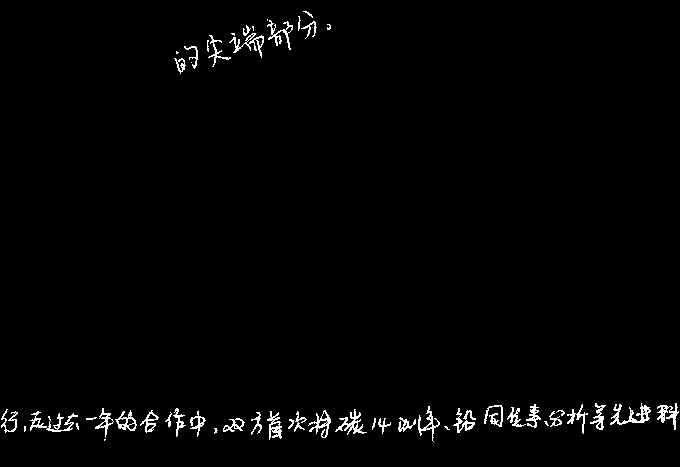 的尖端部分。
行,在过去一年的合作中,双方首次将碳14测年、铅同位素分析等先进科